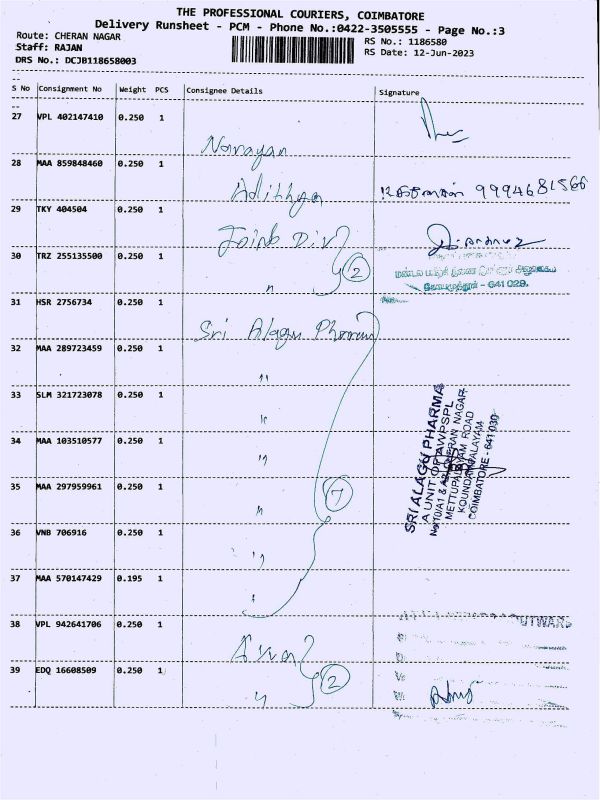 THE PROFESSIONAL COURIERS, COIMBATORE
Delivery Runsheet - PCM - Phone No.:0422-3505555 - Page No.:3
Route: CHERAN NAGAR
RS No.: 1186580
Staff: RAJAN
RS Date: 12-Jun-2023
DRS No.: DCJB118658003
S No Consignment No Weight PCS Consignee Details Signature
27 VPL 402147410 0.250 1 Narayan
28 MAA 859848460 0.250 1 Adithya 9994681566
29 TKY 404504 0.250 1 Joint Div
30 TRZ 255135500 0.250 1 " 2
கோயமுத்தூர் - 641 029.
31 HSR 2756734 0.250 1 Sri Alagu Pharma
32 MAA 289723459 0.250 1 "
33 SLM 321723078 0.250 1 "
34 MAA 103510577 0.250 1 "
35 MAA 297959961 0.250 1 " 7
36 VNB 706916 0.250 1 "
37 MAA 570147429 0.195 1 "
SRI ALAGU PHARMA
A UNIT OF AWPSPL
No:10/A1 & A2, CHERAN NAGAR
METTUPALAYAM ROAD
KOUNDAMPALAYAM
COIMBATORE - 641 030
38 VPL 942641706 0.250 1
39 EDQ 16608509 0.250 1 " 2